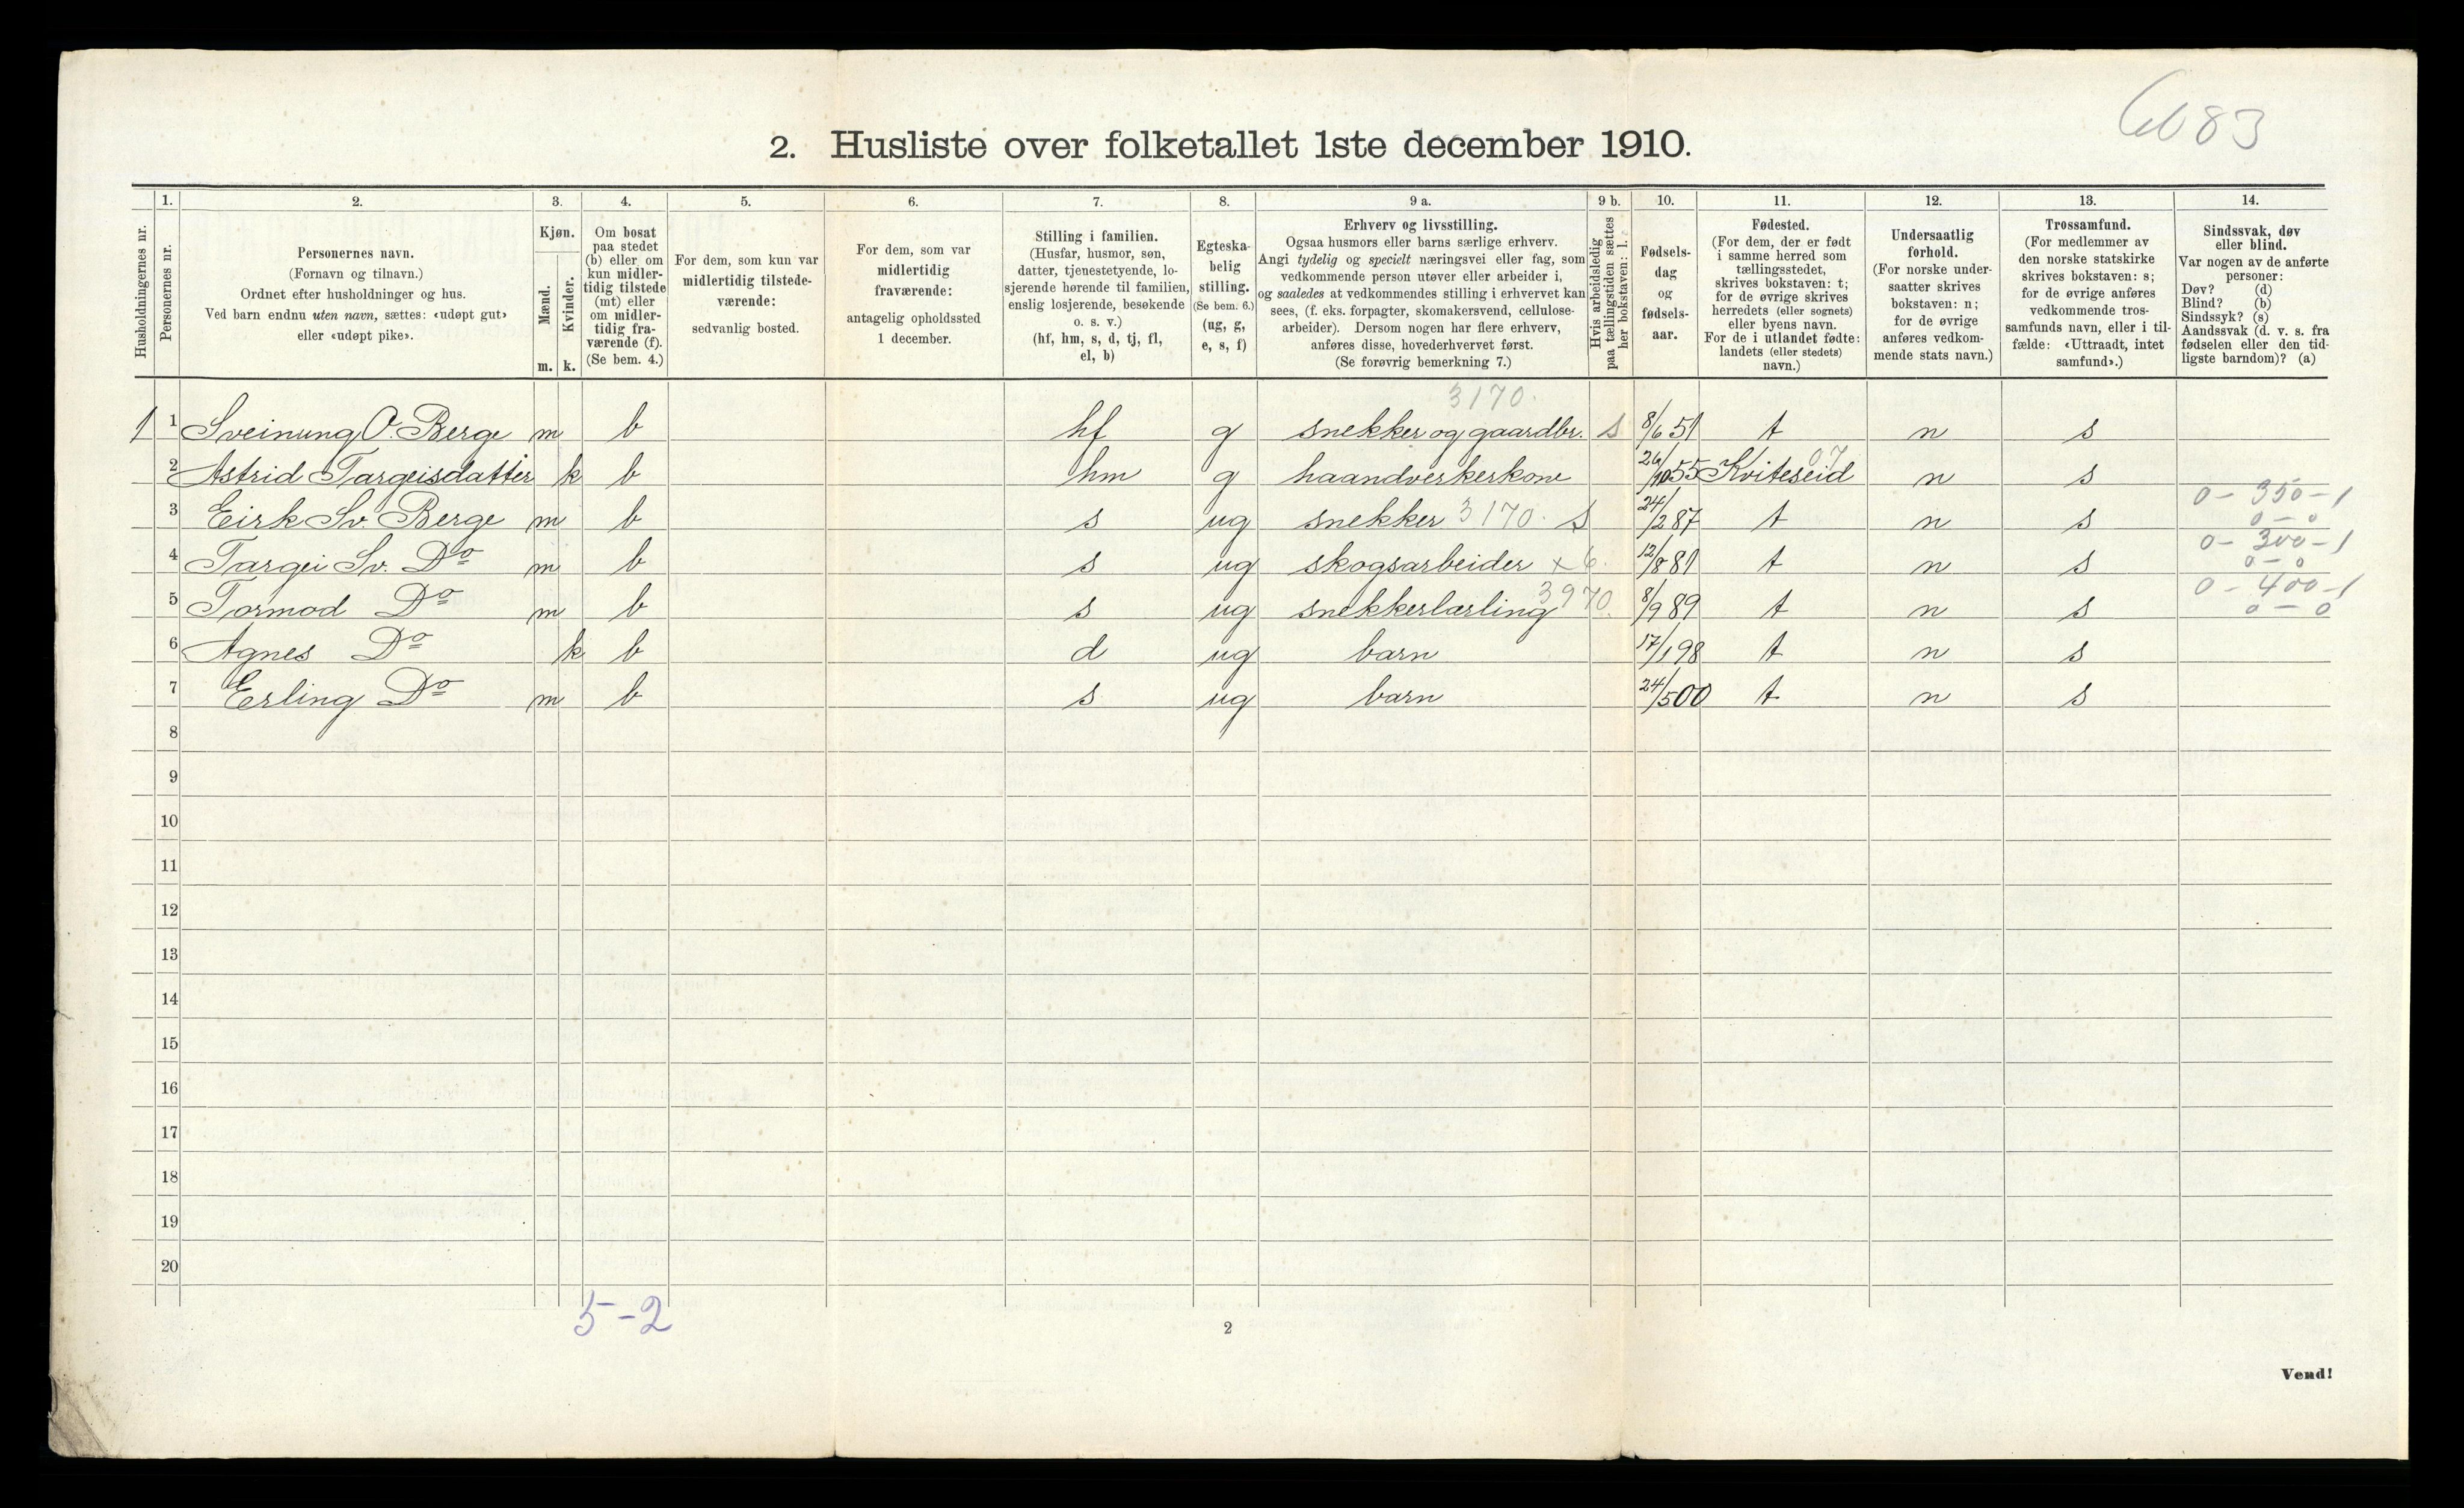 6683
2. Husliste over folketallet 1ste december 1910.
Husholdningernes nr.
1.
Personernes nr.
2.
Personernes navn.
(Fornavn og tilnavn.)
Ordnet efter husholdninger og hus.
Ved barn endnu uten navn, sættes: «udøpt gut»
eller «udøpt pike».
3.
Kjøn.
Mænd.
Kvinder.
m. k.
4.
Om bosat
paa stedet
(b) eller om
kun midler-
tidig tilstede
(mt) eller
om midler-
tidig fra-
værende (f).
(Se bem. 4.)
5.
For dem, som kun var
midlertidig tilstede-
værende:
sedvanlig bosted.
6.
For dem, som var
midlertidig
fraværende:
antagelig opholdssted
1 december.
7.
Stilling i familien.
(Husfar, husmor, søn,
datter, tjenestetyende, lo-
sjerende hørende til familien,
enslig losjerende, besøkende
o. s. v.)
(hf, hm, s, d, tj, fl,
el, b)
8.
Egteska-
belig
stilling.
(Se bem. 6.)
(ug, g,
e, s, f)
9 a.
Erhverv og livsstilling.
Ogsaa husmors eller barns særlige erhverv.
Angi tydelig og specielt næringsvei eller fag, som
vedkommende person utøver eller arbeider i,
og saaledes at vedkommendes stilling i erhvervet kan
sees, (f. eks. forpagter, skomakersvend, cellulose-
arbeider). Dersom nogen har flere erhverv,
anføres disse, hovederhvervet først.
(Se forøvrig bemerkning 7.)
9 b.
Hvis arbeidsledig
paa tællingstiden sættes
her bokstaven: l.
10.
Fødsels-
dag
og
fødsels-
aar.
11.
Fødested.
(For dem, der er født
i samme herred som
tællingsstedet,
skrives bokstaven: t;
for de øvrige skrives
herredets (eller sognets)
eller byens navn.
For de i utlandet fødte:
landets (eller stedets)
navn.)
12.
Undersaatlig
forhold.
(For norske under-
saatter skrives
bokstaven: n;
for de øvrige
anføres vedkom-
mende stats navn.)
13.
Trossamfund.
(For medlemmer av
den norske statskirke
skrives bokstaven: s;
for de øvrige anføres
vedkommende tros-
samfunds navn, eller i til-
fælde: «Uttraadt, intet
samfund».)
14.
Sindssvak, døv
eller blind.
Var nogen av de anførte
personer:
Døv? (d)
Blind? (b)
Sindssyk? (s)
Aandssvak (d. v. s. fra
fødselen eller den tid-
ligste barndom)? (a)
3170.
1 1 Sveinung O. Berge m b hf g snekker og gaardbr. s 8/6 51 t n s
07
2 Astrid Targeisdatter k b hm g haandverkerkone 26/10 55 Kviteseid n s
0 - 350 - 1
3 Eirk Sv. Berge m b s ug snekker 3170. s 24/2 87 t n s 0 - 0
0 - 300 - 1
4 Targei Sv. Do m b s ug skogsarbeider x 6. 12/8 81 t n s 0 - 0
0 - 400 - 1
5 Tormod Do m b s ug snekkerlærling 3970. 8/9 89 t n s 0 - 0
6 Agnes Do k b d ug barn 17/1 98 t n s
7 Erling Do m b s ug barn 24/5 00 t n s
8
9
10
11
12
13
14
15
16
17
18
19
20
5-2
2
Vend!